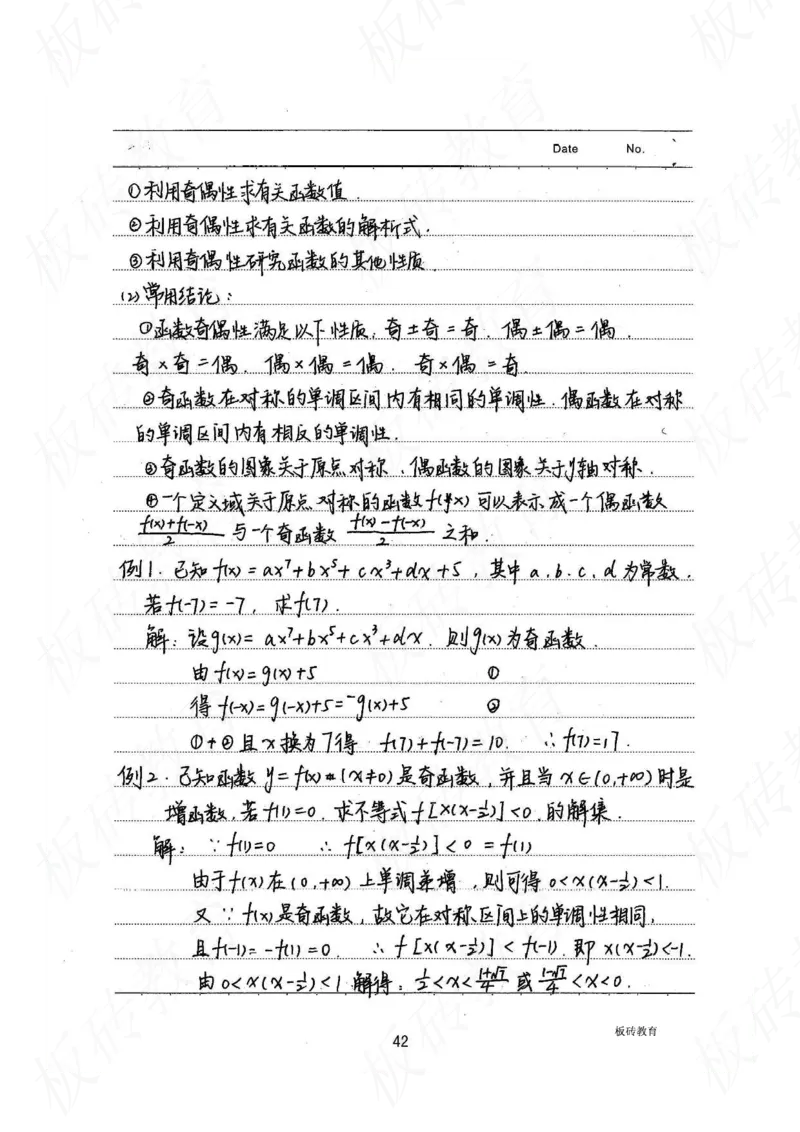 Date No.
①利用奇偶性求有关函数值.
②利用奇偶性求有关函数的解析式.
③利用奇偶性研究函数的其他性质.
(2)常用结论:
①函数奇偶性满足以下性质. 奇±奇=奇. 偶±偶=偶.
奇×奇=偶. 偶×偶=偶. 奇×偶=奇.
②奇函数在对称的单调区间内有相同的单调性. 偶函数在对称
的单调区间内有相反的单调性.
③奇函数的图象关于原点对称、偶函数的图象关于y轴对称.
④一个定义域关于原点对称的函数f(x)可以表示成一个偶函数
(f(x)+f(-x))/2 与一个奇函数 (f(x)-f(-x))/2 之和.
例1. 已知f(x)=ax⁷+bx⁵+cx³+dx+5, 其中a.b.c.d为常数.
若f(-7)=-7, 求f(7).
解: 设g(x)=ax⁷+bx⁵+cx³+dx. 则g(x)为奇函数.
由f(x)=g(x)+5 ①
得f(-x)=g(-x)+5=-g(x)+5 ②
①+②且x换为7得 f(7)+f(-7)=10. ∴f(7)=17.
例2. 已知函数y=f(x)(x≠0)是奇函数, 并且当x∈(0,+∞)时是
增函数, 若f(1)=0, 求不等式f[x(x-½)]<0.的解集.
解: ∵f(1)=0 ∴f[x(x-½)]<0=f(1)
由于f(x)在(0,+∞)上单调递增, 则可得0<x(x-½)<1.
又∵f(x)是奇函数, 故它在对称区间上的单调性相同,
且f(-1)=-f(1)=0. ∴f[x(x-½)]<f(-1). 即x(x-½)<-1.
由0<x(x-½)<1解得: ½<x<(1+√17)/4 或 (1-√17)/4<x<0.
板砖教育
42